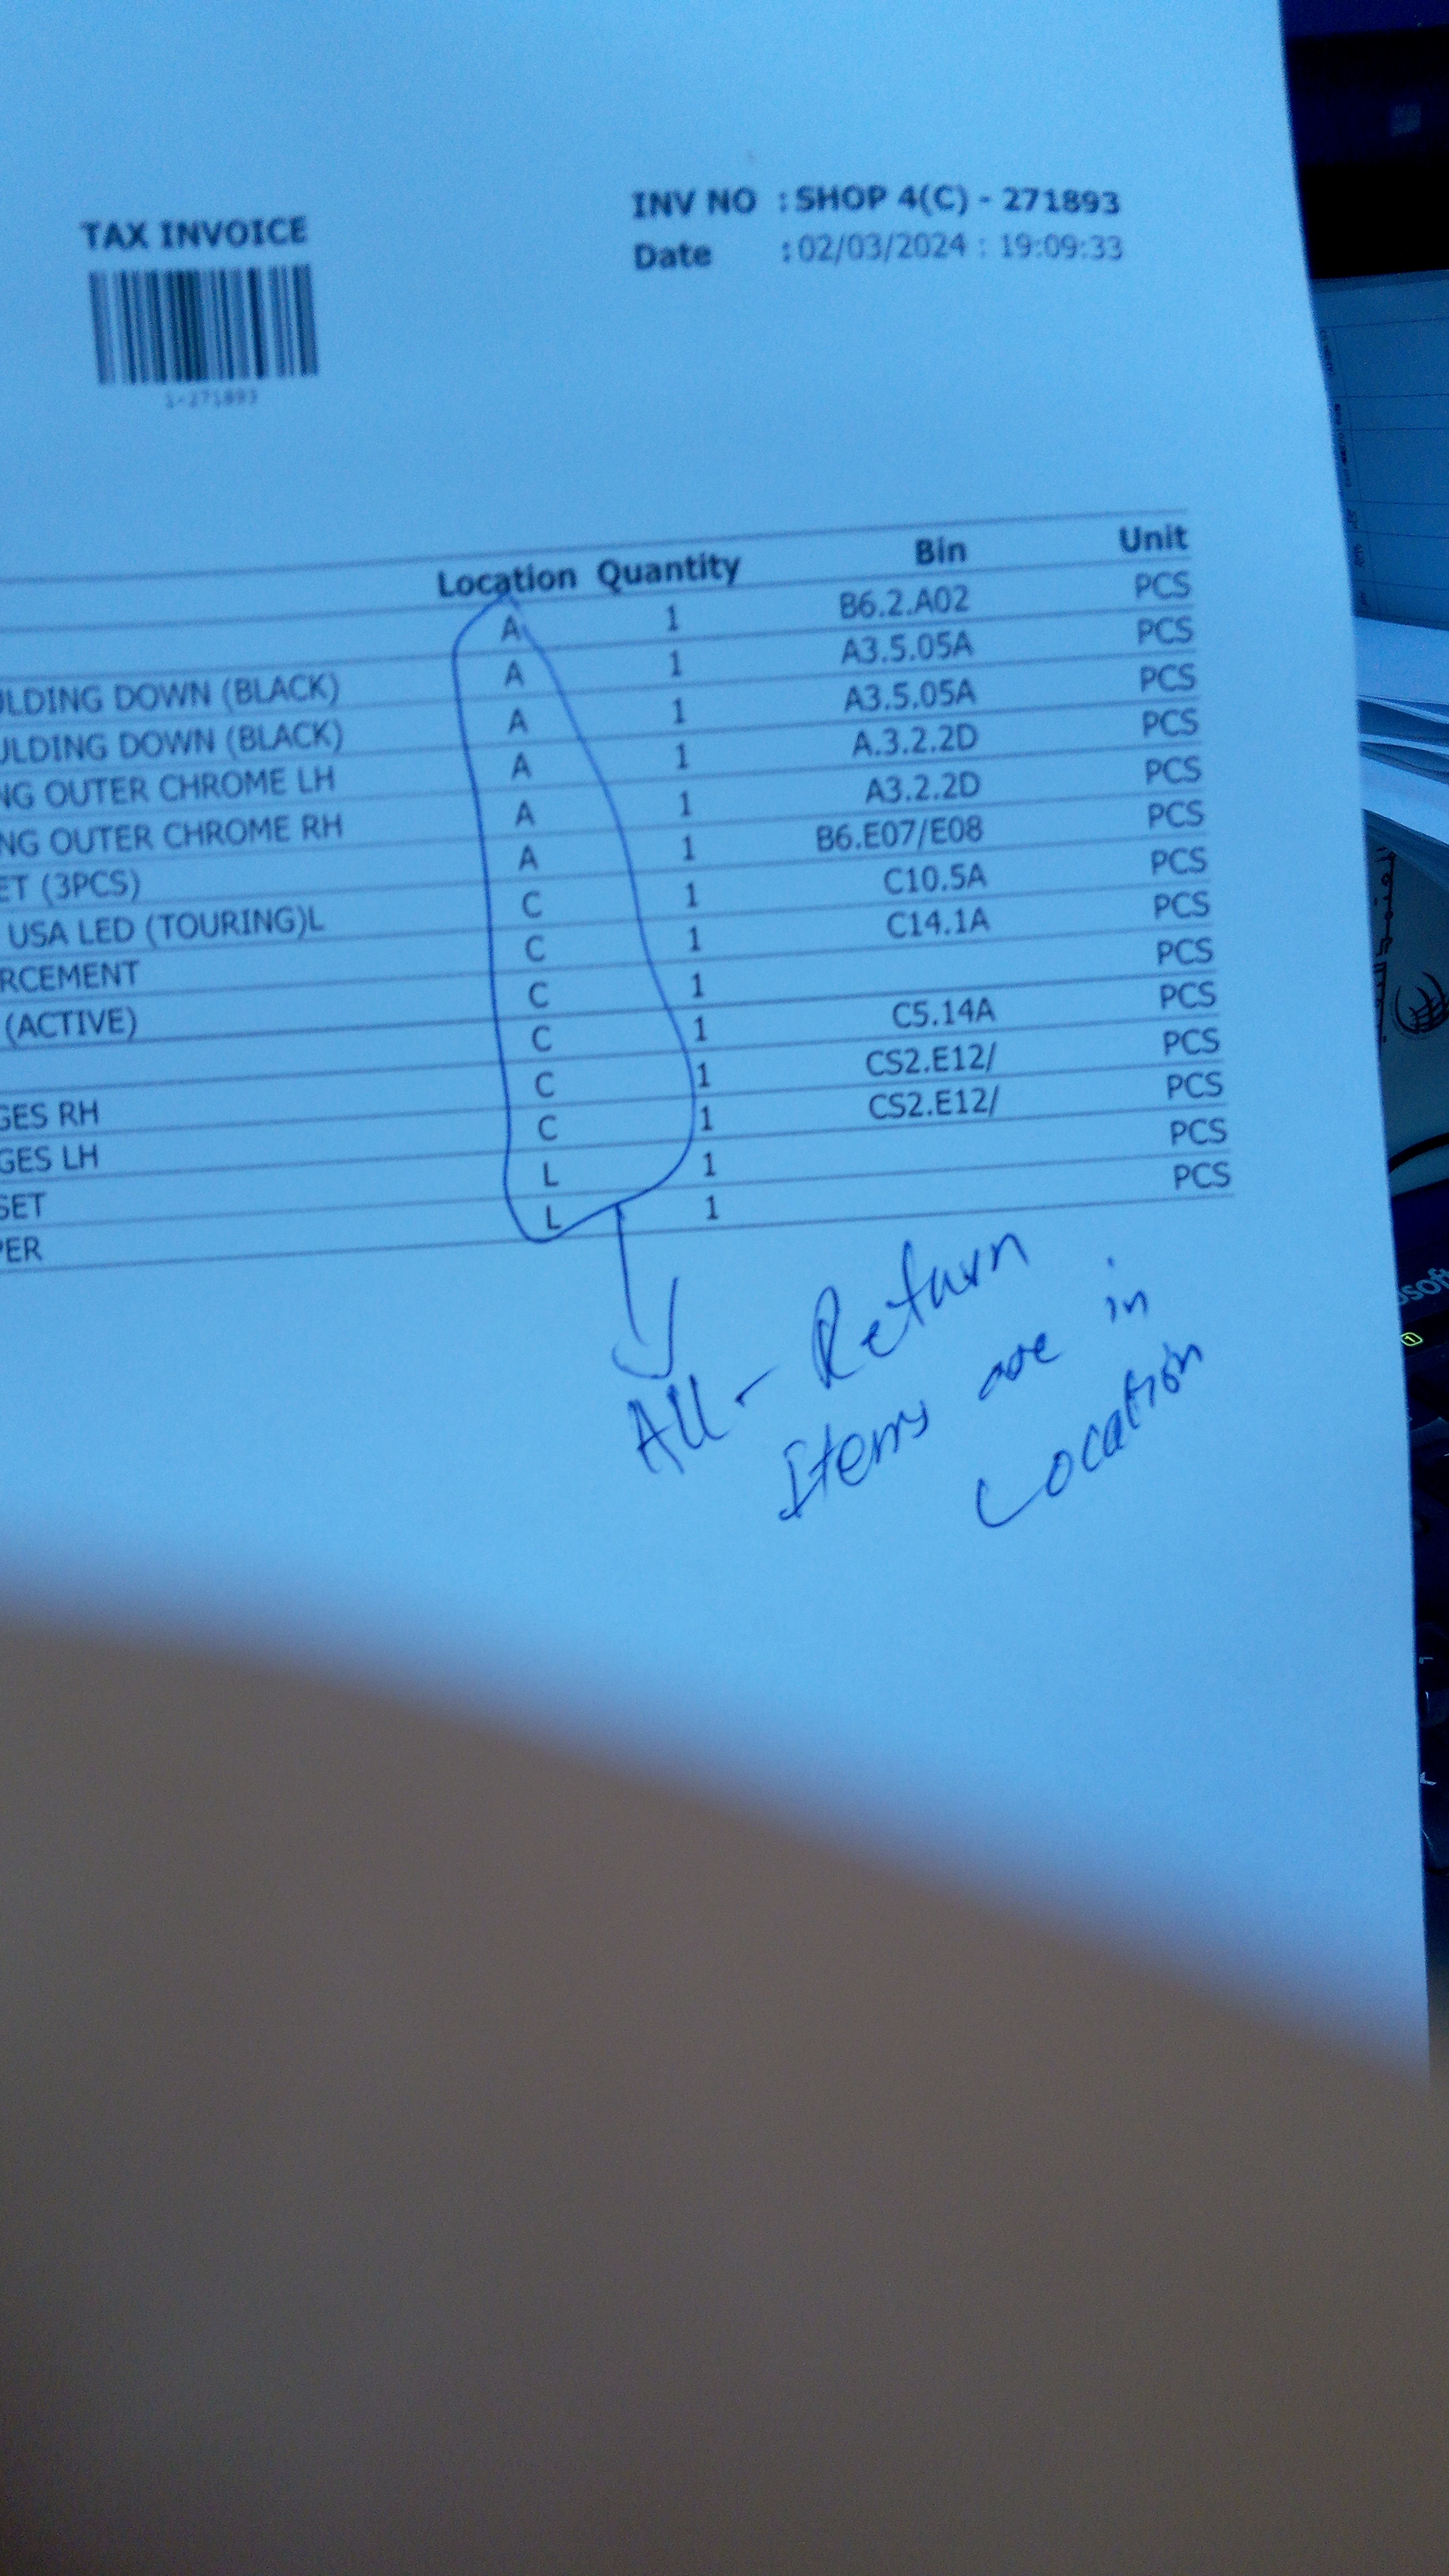 TAX INVOICE
INV NO : SHOP 4(C) - 271893
Date : 02/03/2024 : 19:09:33
1-271893
Location Quantity Bin Unit
A 1 B6.2.A02 PCS
ULDING DOWN (BLACK) A 1 A3.5.05A PCS
ULDING DOWN (BLACK) A 1 A3.5.05A PCS
NG OUTER CHROME LH A 1 A.3.2.2D PCS
NG OUTER CHROME RH A 1 A3.2.2D PCS
ET (3PCS) A 1 B6.E07/E08 PCS
USA LED (TOURING)L C 1 C10.5A PCS
RCEMENT C 1 C14.1A PCS
(ACTIVE) C 1 PCS
C 1 C5.14A PCS
GES RH C 1 CS2.E12/ PCS
GES LH C 1 CS2.E12/ PCS
SET L 1 PCS
PER L 1 PCS
All - Return
Items are in
Location